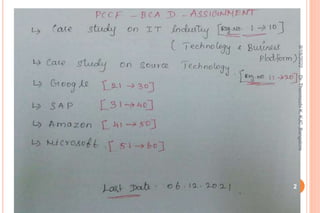 PCCF - BCA D - ASSIGNMENT
↳ Case study on IT Industry [Reg.no. 1 → 10]
( Technology & Business Platform)
↳ Case study on Source Technology. [Reg.no. 11 → 20]
↳ Google [21 → 30]
↳ SAP [31 → 40]
↳ Amazon [41 → 50]
↳ Microsoft. [51 → 60]
Last Date: 06.12.2021.
2